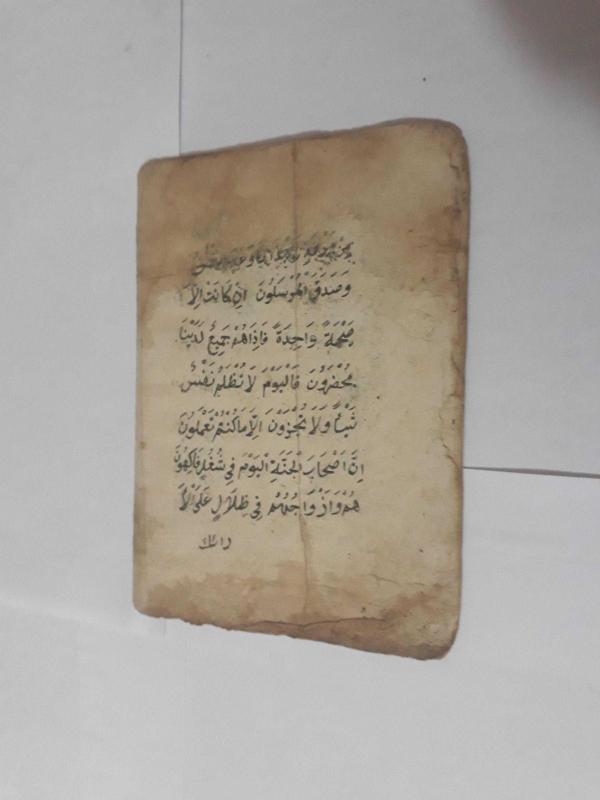 وَصَدَقَ الْمُرْسَلُونَ اِنْ كَانَتْ اِلَّا
صَيْحَةً وَاحِدَةً فَاِذَاهُمْ جَمِيعٌ لَدَيْنَا
مُحْضَرُونَ فَالْيَوْمَ لَا تُظْلَمُ نَفْسٌ
شَيْئًا وَلَا تُجْزَوْنَ اِلَّا مَا كُنْتُمْ تَعْمَلُونَ
اِنَّ اَصْحَابَ الْجَنَّةِ الْيَوْمَ فِي شُغُلٍ فَاكِهُونَ
هُمْ وَاَزْوَاجُهُمْ فِي ظِلَالٍ عَلَى الْاَ
رائك